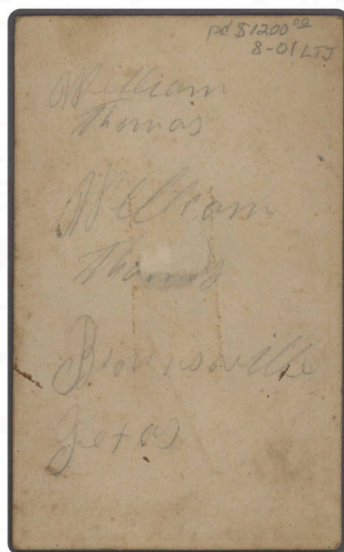 pd $1200 00
8-01 LTJ
William
Thomas
William
Thomas
Brownsville
Texas